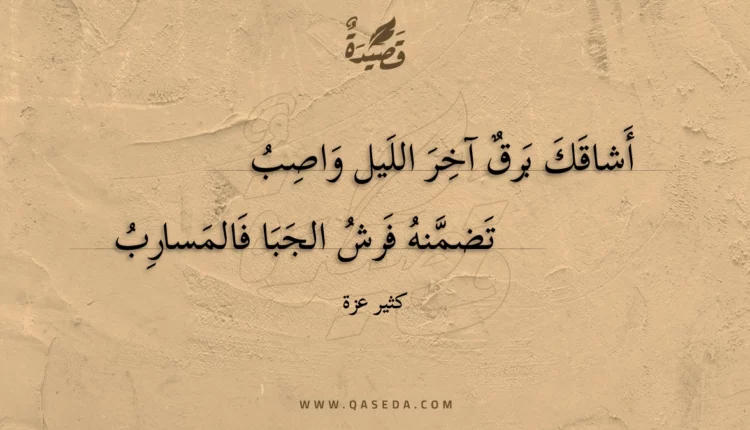 قَصِيدَةٌ
أَشاقَكَ بَرقٌ آخِرَ اللَيلِ وَاصِبُ
تَضمَّنهُ فَرشُ الجَبَا فَالمَسارِبُ
كثير عزة
WWW.QASEDA.COM